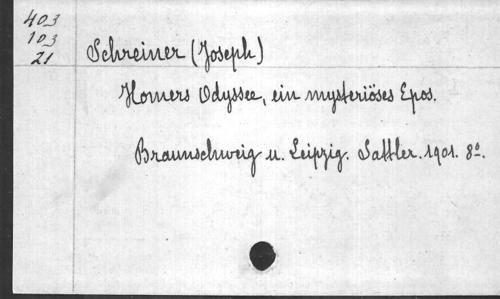 403
103
21
Schreiner (Joseph)
Homers Odyssee, ein mysteriöses Epos.
Braunschweig u. Leipzig. Sattler. 1901. 8º.